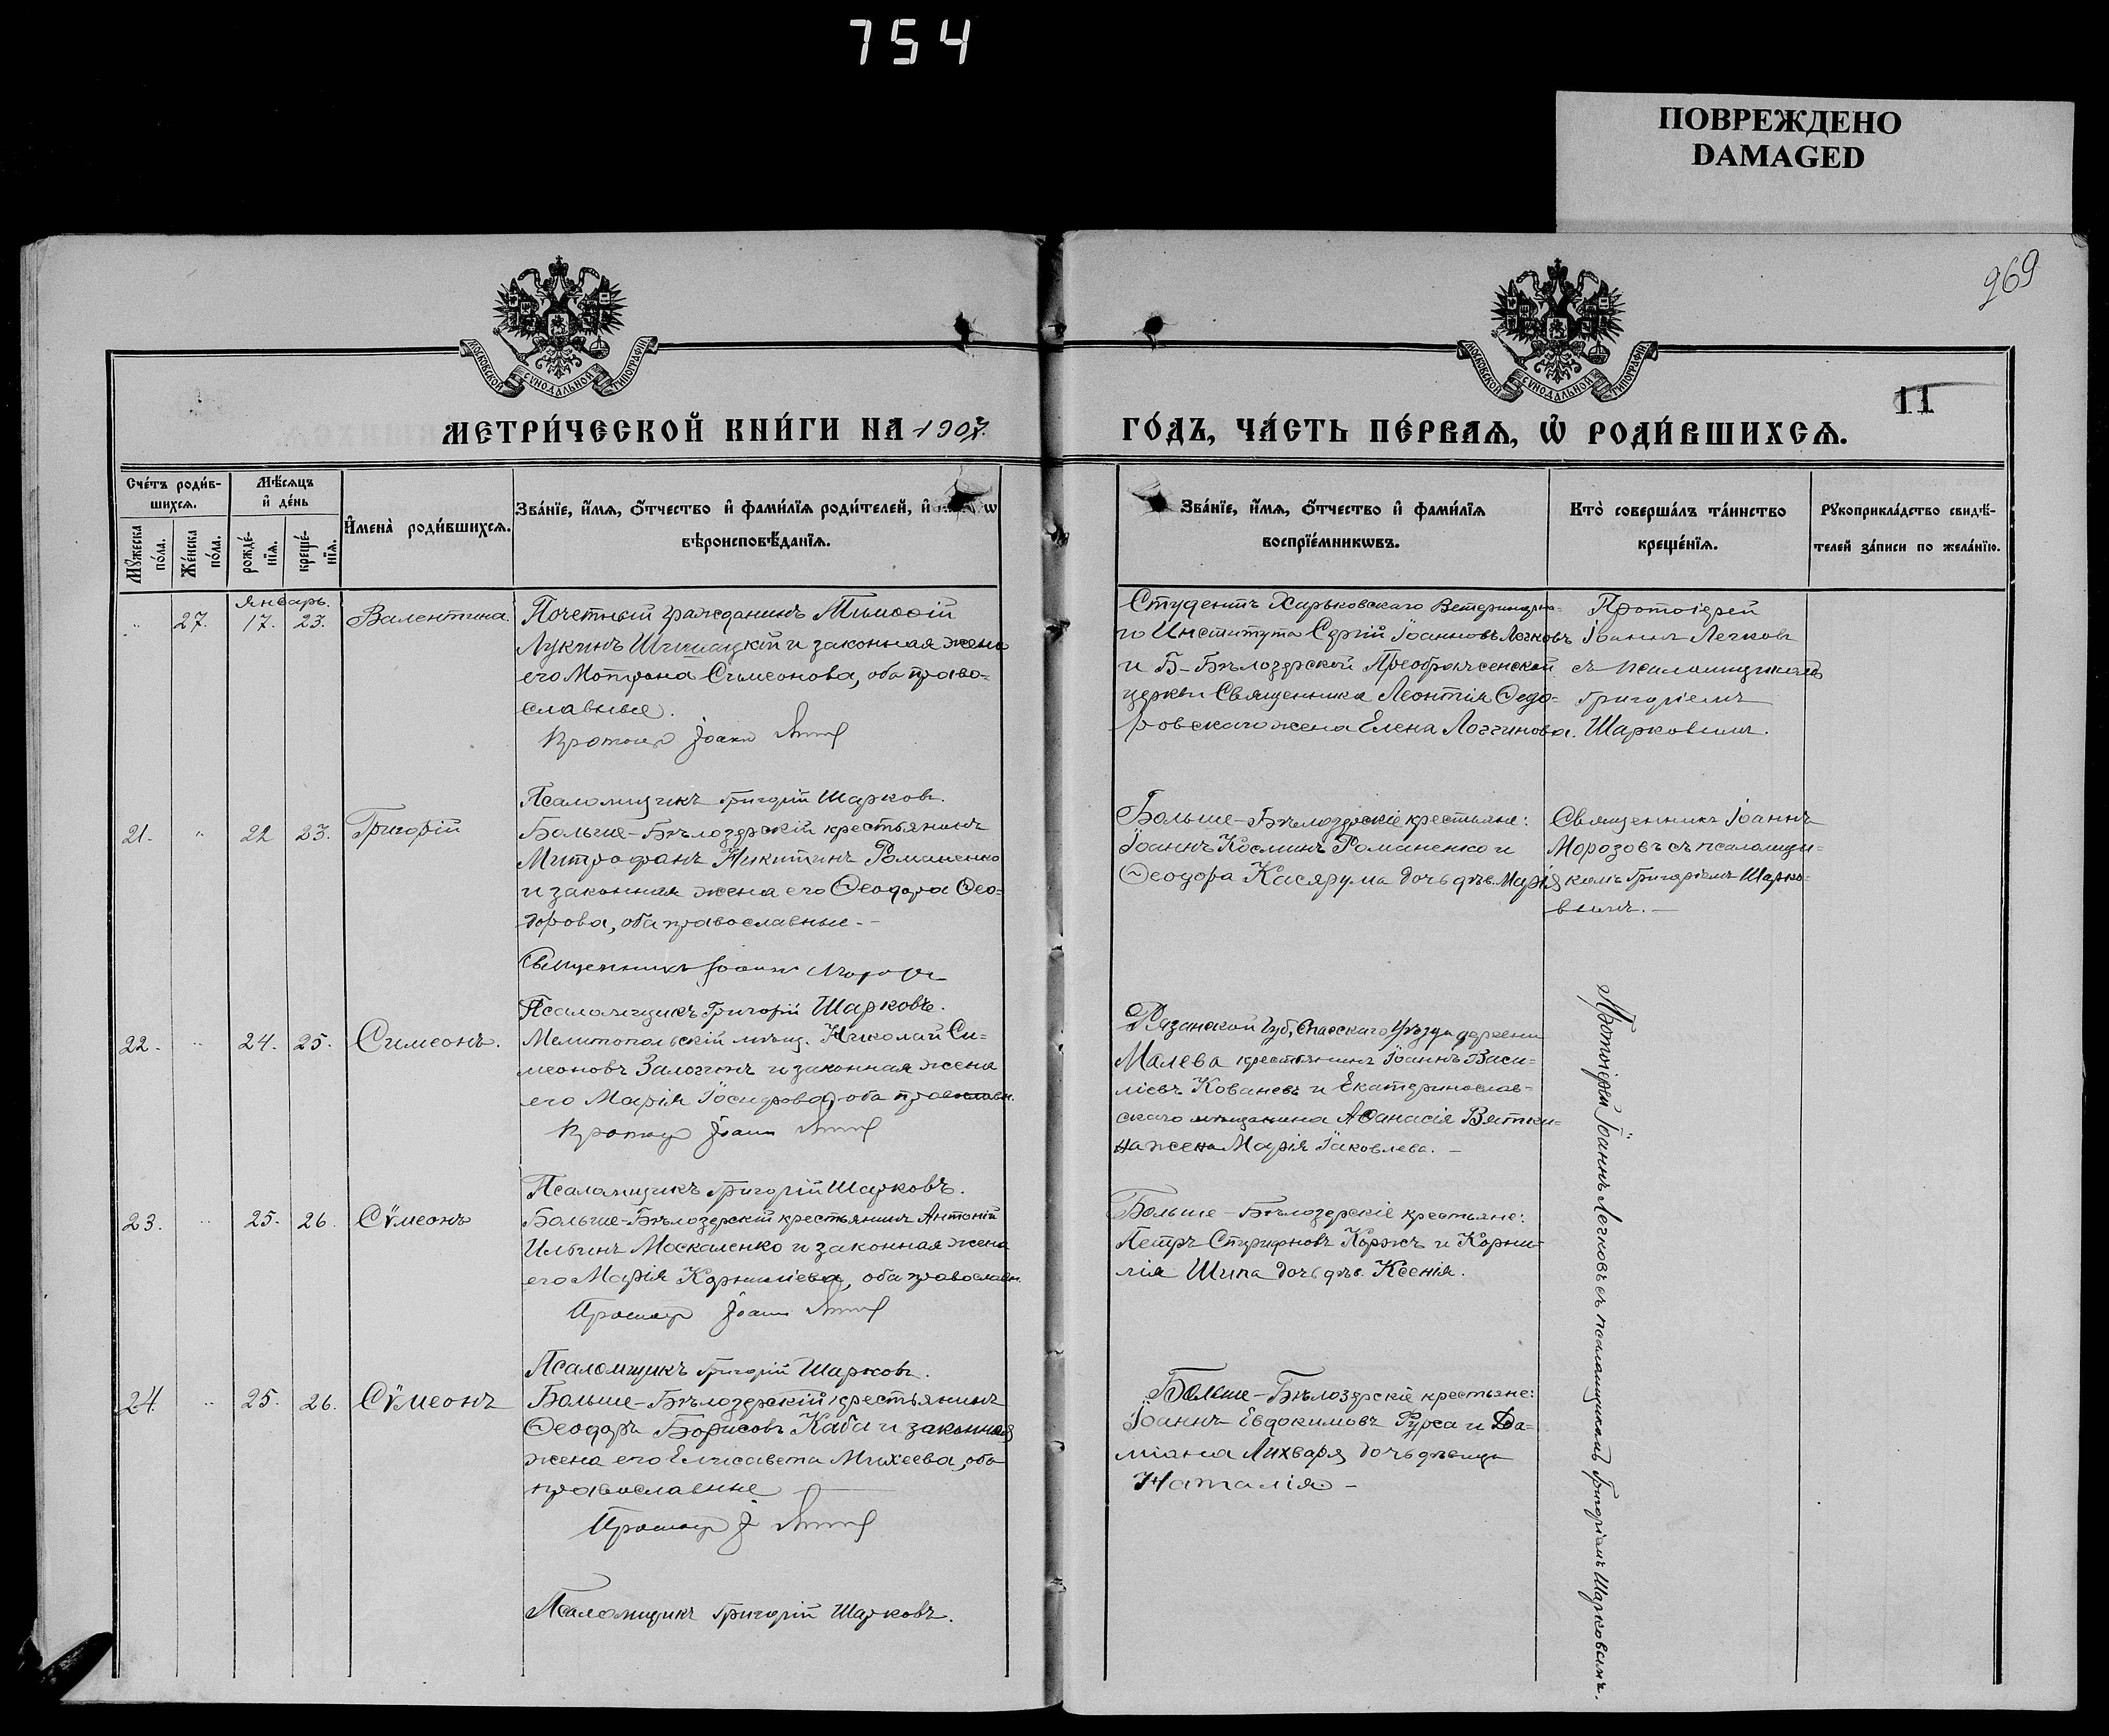 754
ПОВРЕЖДЕНО
DAMAGED
969
МОСКОВСКОЙ СУНОДАЛЬНОЙ ТИПОГРАФІИ
МОСКОВСКОЙ СУНОДАЛЬНОЙ ТИПОГРАФІИ
11
МЕТРИ́ЧЕСКОЙ КНИ́ГИ НА 1907.
ГО́ДЪ, ЧА́СТЬ ПЕ́РВАѦ, Ѡ҆ РОДИ́ВШИХСѦ.
Сче́тъ роди́в-
шихсѧ.
Мѣ́сѧцъ
и҆ де́нь
Мꙋ́жеска
по́ла.
Же́нска
по́ла.
рожде́-
нїѧ.
креще́-
нїѧ.
И҆мена̀ роди́вшихсѧ.
Зва́нїе, и҆́мѧ, ѻ҆́тчество и҆ фами́лїѧ роди́телей, и҆
вѣроисповѣ́данїѧ.
Зва́нїе, и҆́мѧ, ѻ҆́тчество и҆ фами́лїѧ
воспрїе́мникѡвъ.
Кто̀ соверша́лъ та́инство
креще́нїѧ.
Рꙋкоприкла́дство свидѣ́-
телей за́писи по жела́нїю.
Январь.
" 27. 17. 23. Валентина.
Почетный гражданинъ Тимоѳій
Лукинъ Шишацкій и законная жена
его Мотрона Симеонова, оба право-
славные.
Протоіер Іоанн
Псаломщикъ Григорій Шарковъ.
Студентъ Харьковскаго Ветеринарна-
го Института Сергій Іоанновъ Легковъ
и Б-Бѣлозерской Преображенской
церкви Священника Леонтія Ѳедо-
ровскаго жена Елена Логгинова.
Протоіерей
Іоаннъ Легковъ
съ псаломщикомъ
Григоріемъ
Шарковымъ.
21. " 22 23. Григорій
Больше-Бѣлозерскій крестьянинъ
Митрофанъ Никитинъ Романенко
и законная жена его Ѳеодора Ѳео-
дорова, оба православные.-
Священникъ Іоаннъ Морозов
Псаломщикъ Григорій Шарковъ.
Больше-Бѣлозерскіе крестьяне:
Іоаннъ Косминъ Романенко и
Ѳеодора Касярума дочь дѣв. Марія
Священникъ Іоаннъ
Морозовъ съ псаломщи-
комъ Григоріемъ Шарко-
вымъ.-
22. " 24. 25. Симеонъ.
Мелитопольскій мѣщ. Николай Си-
меоновъ Залогинъ и законная жена
его Марія Іосифова, оба православн.
Протоіер Іоанн
Псаломщикъ Григорій Шарковъ.
Рязанской Губ, Спасскаго уѣзда деревни
Малева крестьянинъ Іоаннъ Васи-
ліевъ Кованевъ и Екатеринослав-
скаго мѣщанина Аѳанасія Вятки-
на жена Марія Іаковлева. -
Протоіерей Іоаннъ Легковъ съ псаломщикомъ Григоріемъ Шарковымъ.
23. " 25. 26. Сѵмеонъ
Больше-Бѣлозерскій крестьянинъ Антоній
Ильинъ Москаленко и законная жена
его Марія Корниліева, оба православн.
Протоіер Іоанн
Псаломщикъ Григорій Шарковъ.
Больше-Бѣлозерскіе крестьяне:
Петръ Коржъ и Корни-
лія Шипа дочь дѣв. Ксенія.
24. " 25. 26. Сѵмеонъ
Больше-Бѣлозерскій крестьянинъ
Ѳеодоръ Борисовъ Каба и законная
жена его Елисавета Михеева, оба
православные
Протоіер І
Псаломщикъ Григорій Шарковъ.
Больше-Бѣлозерскіе крестьяне:
Іоаннъ Евдокимовъ Рурса и Да-
міана Лихваря дочь дѣвица
Наталія -